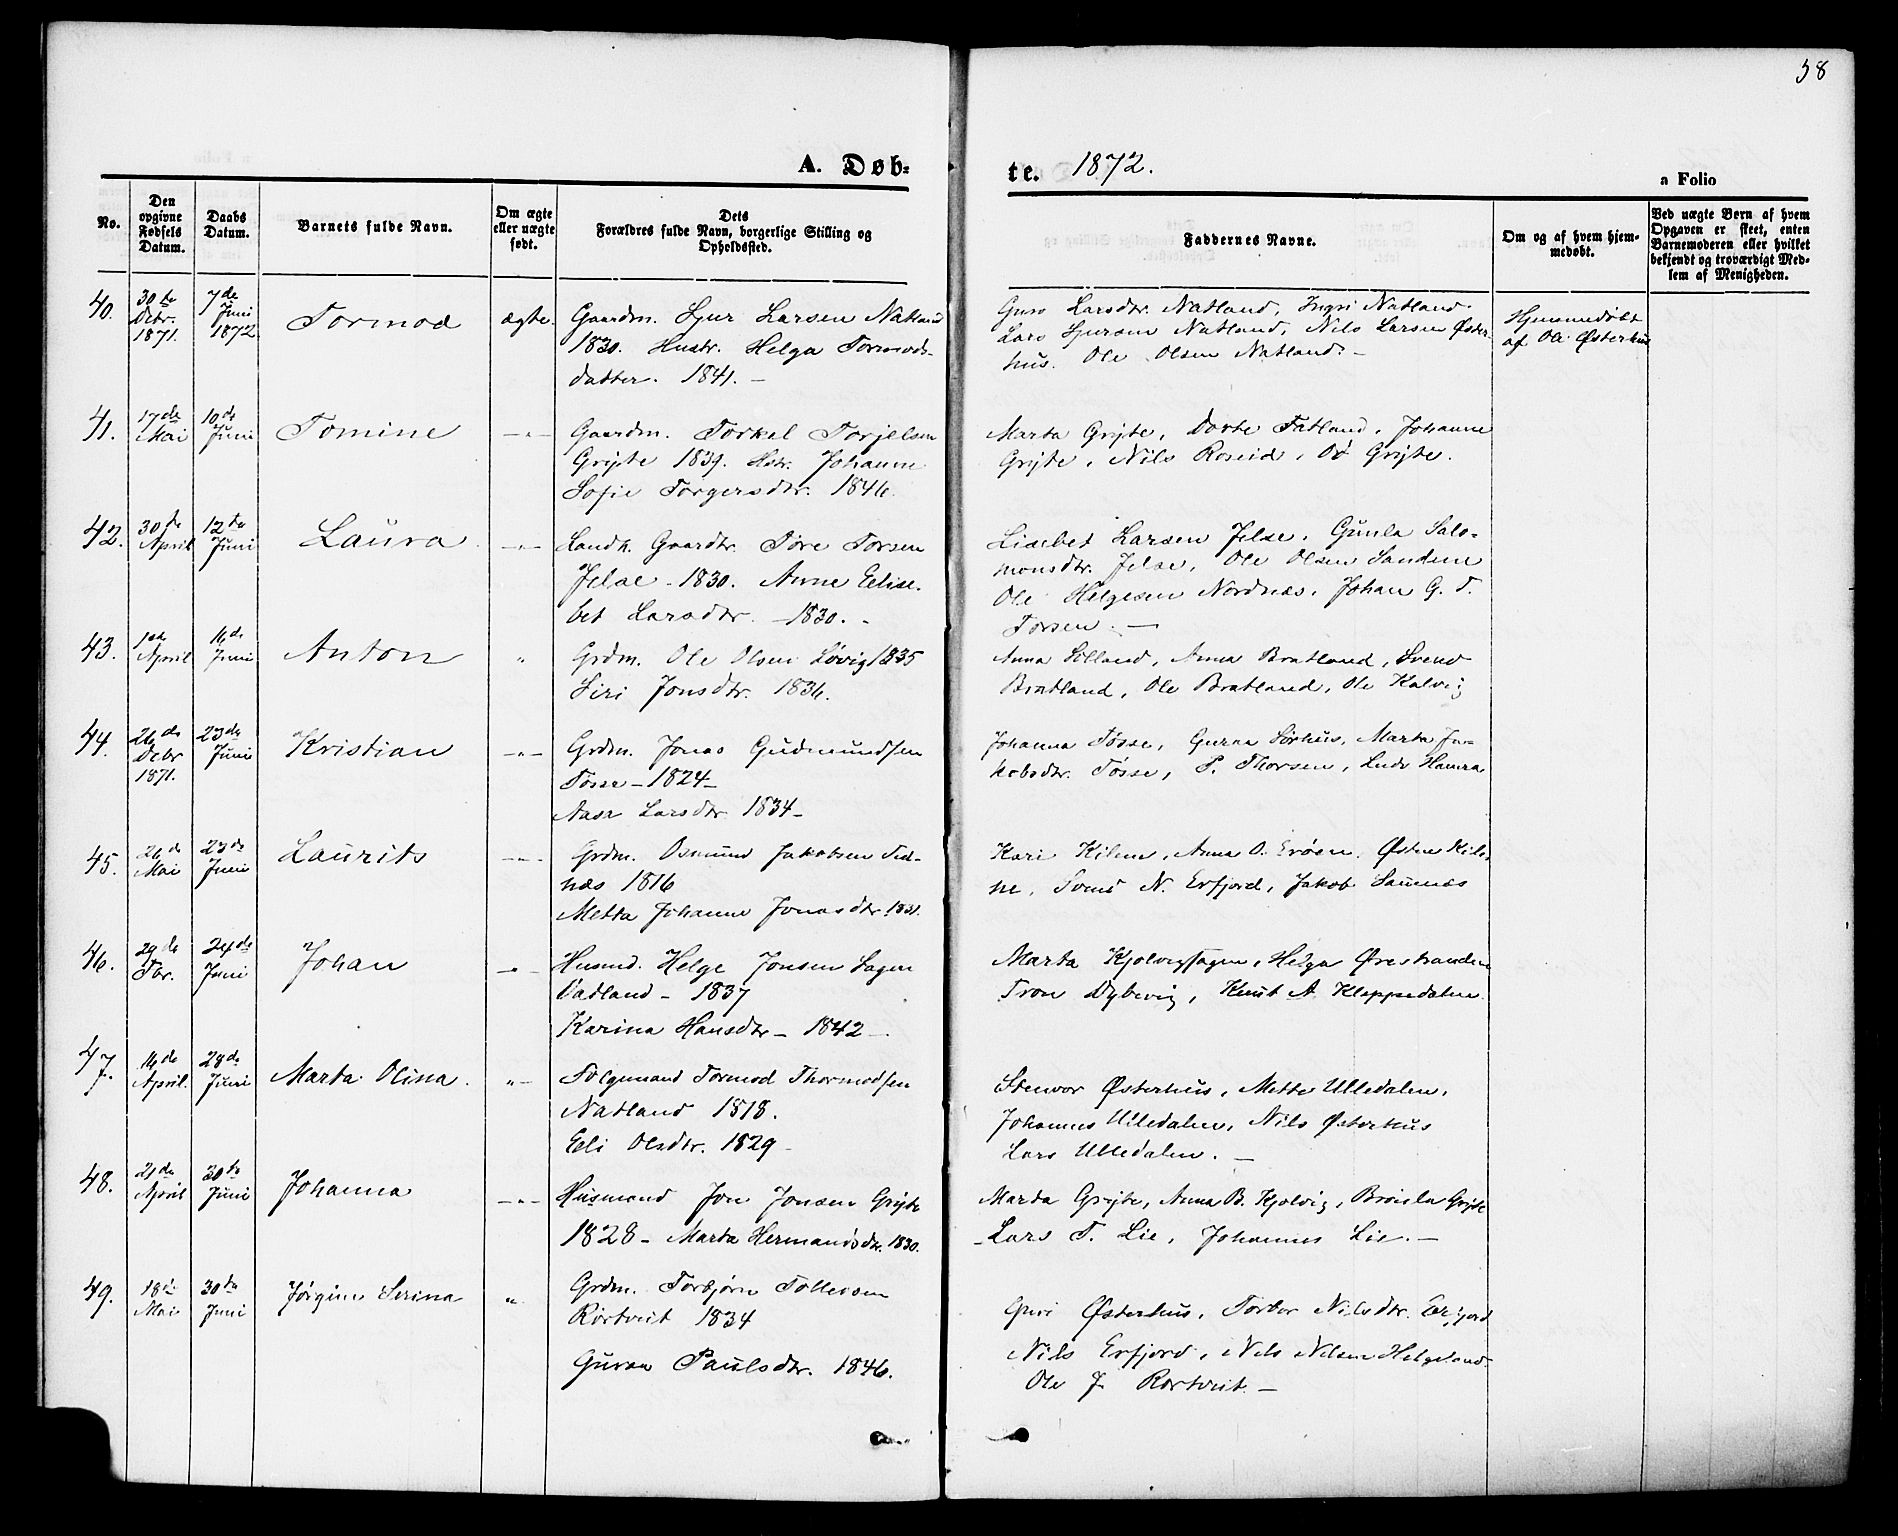 38
A. Døb-
te. 1872.
a Folio
No.
Den
opgivne
Fødsels
Datum.
Daabs
Datum.
Barnets fulde Navn.
Om ægte
eller uægte
født.
Dets
Forældres fulde Navn, borgerlige Stilling og
Opholdssted.
Faddernes Navne.
Om og af hvem hjem-
medøbt.
Ved uægte Børn af hvem
Opgaven er skeet, enten
Barnemoderen eller hvilket
bekjendt og troværdigt Med-
lem af Menigheden.
40.
30te
Debr.
1871.
7de
Juni
1872
Tormod
ægte.
Gaardm. Sjur Larsen Natland
1830. Hustr. Helga Tormods-
datter. 1841. —
Guro Larsdtr. Natland, Ingri Natland.
Lars Sjursen Natland, Nils Larsen Øster-
hus. Ole Olsen Natland. —
Hjemmedøbt
af Ole Østerhus
41.
17de
Mai
10de
Juni
Tomine
—„—
Gaardm. Torkel Torjelsen
Grijte 1839. Hstr. Johanne
Sofie Torgersdtr. 1846.
Marta Grijte, Dorte Fatland, Johanne
Grijte, Nils Roseid, Grijte.
42.
30te
April
12te
Juni
Laura
—„—
Landh. Gaardbr. Tore Torsen
Jelse - 1830. Anne Elise-
bet Larsdtr. - 1830. -
Lisebet Larsen Jelse. Gunla Salo-
monsdtr. Jelse, Ole Olsen Sandene
Ole Helgesen Nordnæs, Johan G. T.
Torsen. —
43.
1ste
April
16de
Juni
Anton
„
Grdm. Ole Olsen Løvig 1835
Siri Jonsdtr. 1836.
Anna Lilland, Anna Bratland, Svend
Bratland, Ole Bratland, Ole Kalvig
44.
26de
Debr
1871.
23de
Juni
Kristian
—„—
Grdm. Jonas Gudmundsen
Tøsse - 1824 -
Aasa Larsdtr 1834 -
Johanna Tøsse, Gurna Sørhus, Marta Ja-
kobsdtr. Tøsse, P. Thorsen, Hamra
45.
26de
Mai
23de
Juni
Laurits
—„—
Grdm. Osmund Jakobsen
næs 1816
Metta Johanne Jonasdtr. 1831.
Kari Kilene, Anna O. Erøen, Østen Kile-
ne, Svend N. Erfjord, Jakob
46.
29de
Fbr.
24de
Juni
Johan
—„—
Husmd. Helge Jonsen Hagen
Vadland - 1837
Karina Hansdtr - 1842 -
Marta Kjolvigshagen, Helga Ørestranden
Tron Dybevig, Knut A. Kleppedalen.
47.
14de
April.
28de
Juni
Marta Olina.
„—
Følgemand Tormod Thormodsen
Natland 1818.
Eli Olsdtr. 1829 -
Stenvor Østerhus, Mette Ulledalen,
Johannes Ulledalen, Nils Østerhus
Lars Ulledalen. —
48.
21de
April
30te
Juni
Johanna
—„—
Husmand Jon Jonsen Grijte
1828 - Marta Hermandsdtr. 1830.
Marta Grijte, Anna B. Kjolvig, Brøisla Grijte
Lars T. Lie, Johannes Lie. —
49.
18de
Mai
30te
Juni
Jørgine Serina
„
Grdm. Torbjørn Tollevsen
Rørtveit 1834
Guroa Paulsdtr. 1846.
Guri Østerhus, Torbor Nilsdtr. Erfjord
Nils Erfjord, Nils Nilsen Helgeland.
Ole J. Rørtveit. —